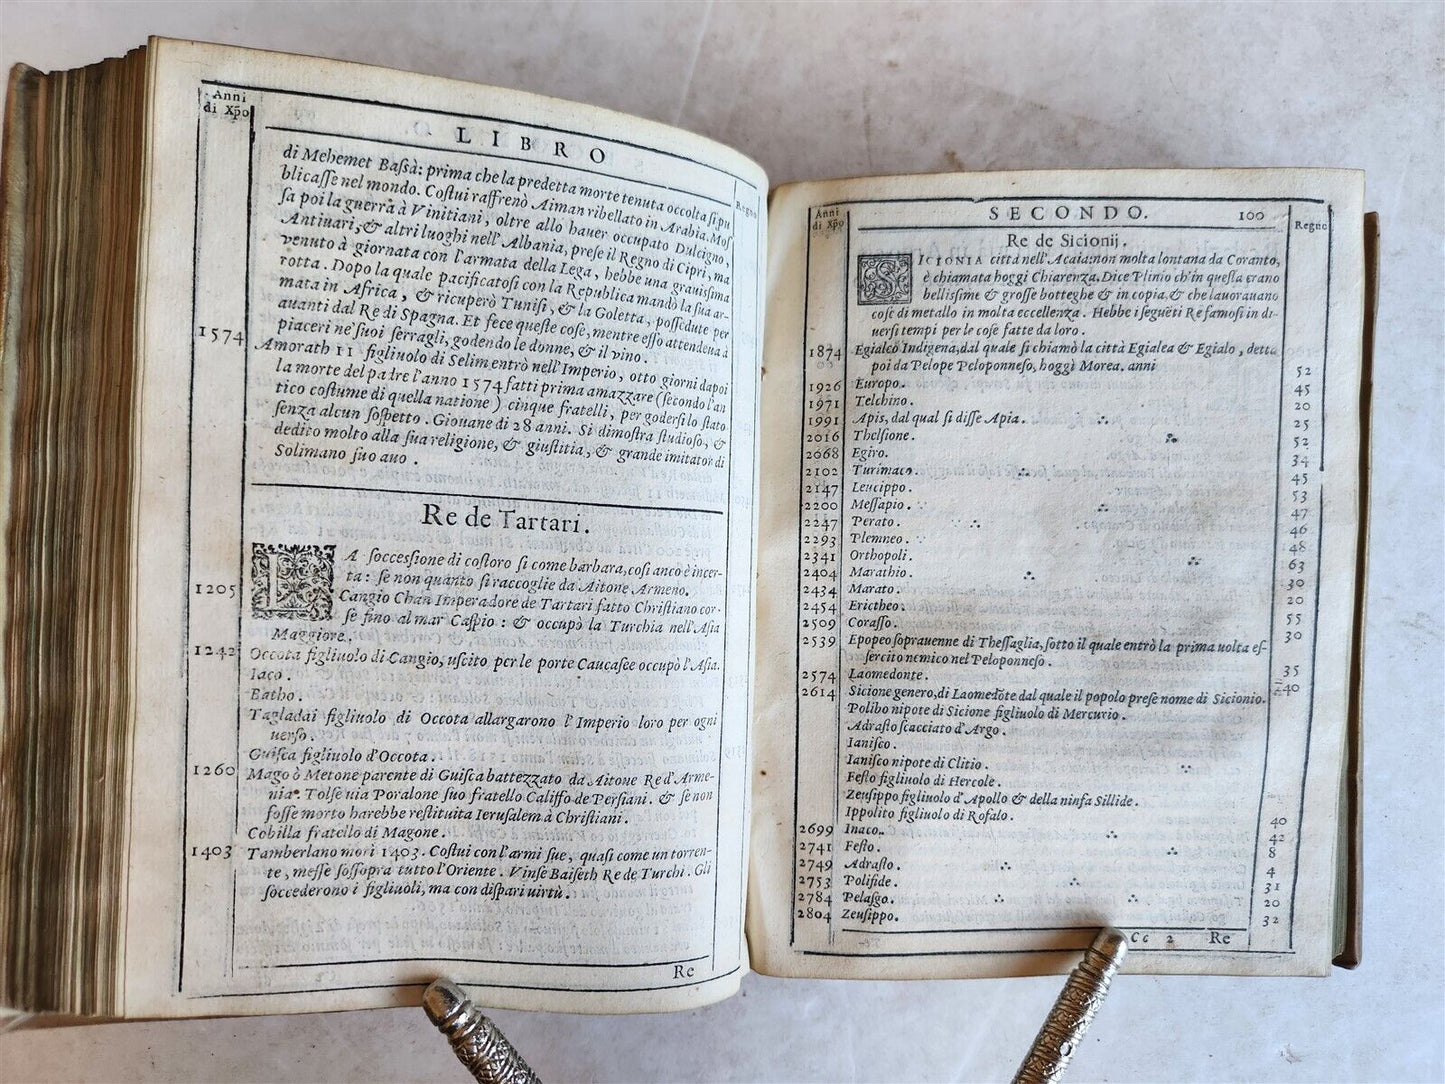 Anni
di Xp̄o
LIBRO
Regno
di Mehemet Baſsà: prima che la predetta morte tenuta occolta ſi pu
blicaſſe nel mondo. Coſtui raffrenò Aiman ribellato in Arabia. Moſ
ſa poi la guerra à Vinitiani, oltre allo hauer occupato Dulcigno,
Antiuari, & altri luoghi nell'Albania, preſe il Regno di Cipri, ma
venuto à giornata con l'armata della Lega, hebbe una grauiſsima
rotta. Dopo la quale pacificatoſi con la Republica mandò la ſua ar-
mata in Africa, & ricuperò Tuniſi, & la Goletta, poſſedute per
auanti dal Re di Spagna. Et fece queſte coſe, mentre eſſo attendeua à
piaceri ne' ſuoi ſerragli, godendo le donne, & il vino.
1574 Amorath II figliuolo di Selim entrò nell'Imperio, otto giorni dapoi
la morte del padre l'anno 1574 fatti prima amazzare (ſecondo l'an
tico coſtume di quella natione) cinque fratelli, per goderſi lo ſtato
ſenza alcun ſoſpetto. Giouane di 28 anni. Si dimoſtra ſtudioſo, &
dedito molto alla ſua religione, & giuſtitia, & grande imitator di
Solimano ſuo auo.
Re de Tartari.
LA ſocceſſione di coſtoro ſi come barbara, coſi anco è incer-
ta: ſe non quanto ſi raccoglie da Aitone Armeno.
1205 Cangio Chan Imperadore de Tartari fatto Chriſtiano cor-
ſe fino al mar Caſpio: & occupò la Turchia nell'Aſia
Maggiore.
1242 Occota figliuolo di Cangio, uſcito per le porte Caucaſee occupò l'Aſia.
Iaco.
Batho.
Tagladai figliuolo di Occota allargarono l'Imperio loro per ogni
uerſo.
Guiſca figliuolo d'Occota.
1260 Mago ò Metone parente di Guiſca battezzato da Aitone Re d'Arme-
nia. Tolſe uia Poralone ſuo fratello Califfo de Perſiani. & ſe non
foſſe morto harebbe reſtituita Ieruſalem à Chriſtiani.
Cobilla fratello di Magone.
1403 Tamberlano morì 1403. Coſtui con l'armi ſue, quaſi come un torren-
te, meſſe ſoſſopra tutto l'Oriente. Vinſe Baiſeth Re de Turchi. Gli
ſoccederono i figliuoli, ma con diſpari uirtù.
Re
Anni
di Xp̄o
SECONDO. 100
Regno
Re de Sicionij.
SICIONIA città nell'Acaia: non molta lontana da Coranto,
è chiamata hoggi Chiarenza. Dice Plinio ch'in queſta erano
belliſſime & groſſe botteghe & in copia, & che lauorauano
coſe di metallo in molta eccellenza. Hebbe i ſeguēti Re famoſi in di-
uerſi tempi per le coſe fatte da loro.
1874 Egialco Indigena, dal quale ſi chiamò la città Egialea & Egialo, detta
poi da Pelope Peloponneſo, hoggi Morea. anni 52
1926 Europo. 45
1971 Telchino. 20
1991 Apis, dal qual ſi diſſe Apia. 25
2016 Thelſione. 52
2068 Egiro. 34
2102 Turimaco. 45
2147 Leucippo. 53
2200 Meſſapio. 47
2247 Perato. 46
2293 Plemneo. 48
2341 Orthopoli. 63
2404 Marathio. 30
2434 Marato. 20
2454 Erictheo. 55
2509 Coraſſo. 30
2539 Epopeo ſoprauenne di Theſſaglia, ſotto il quale entrò la prima uolta eſ-
ſercito nemico nel Peloponneſo. 35
2574 Laomedonte. 40
2614 Sicione genero, di Laomedōte dal quale il popolo preſe nome di Sicionio.
Polibo nipote di Sicione figliuolo di Mercurio.
Adraſto ſcacciato d'Argo.
Ianiſco.
Ianiſco nipote di Clitio.
Feſto figliuolo di Hercole.
Zeuſippo figliuolo d'Apollo & della ninfa Sillide.
Ippolito figliuolo di Rofalo. 40
2699 Inaco. 42
2741 Feſto. 8
2749 Adraſto. 4
2753 Polifide. 31
2784 Pelaſgo. 20
2804 Zeuſippo. 32
Cc 2 Re